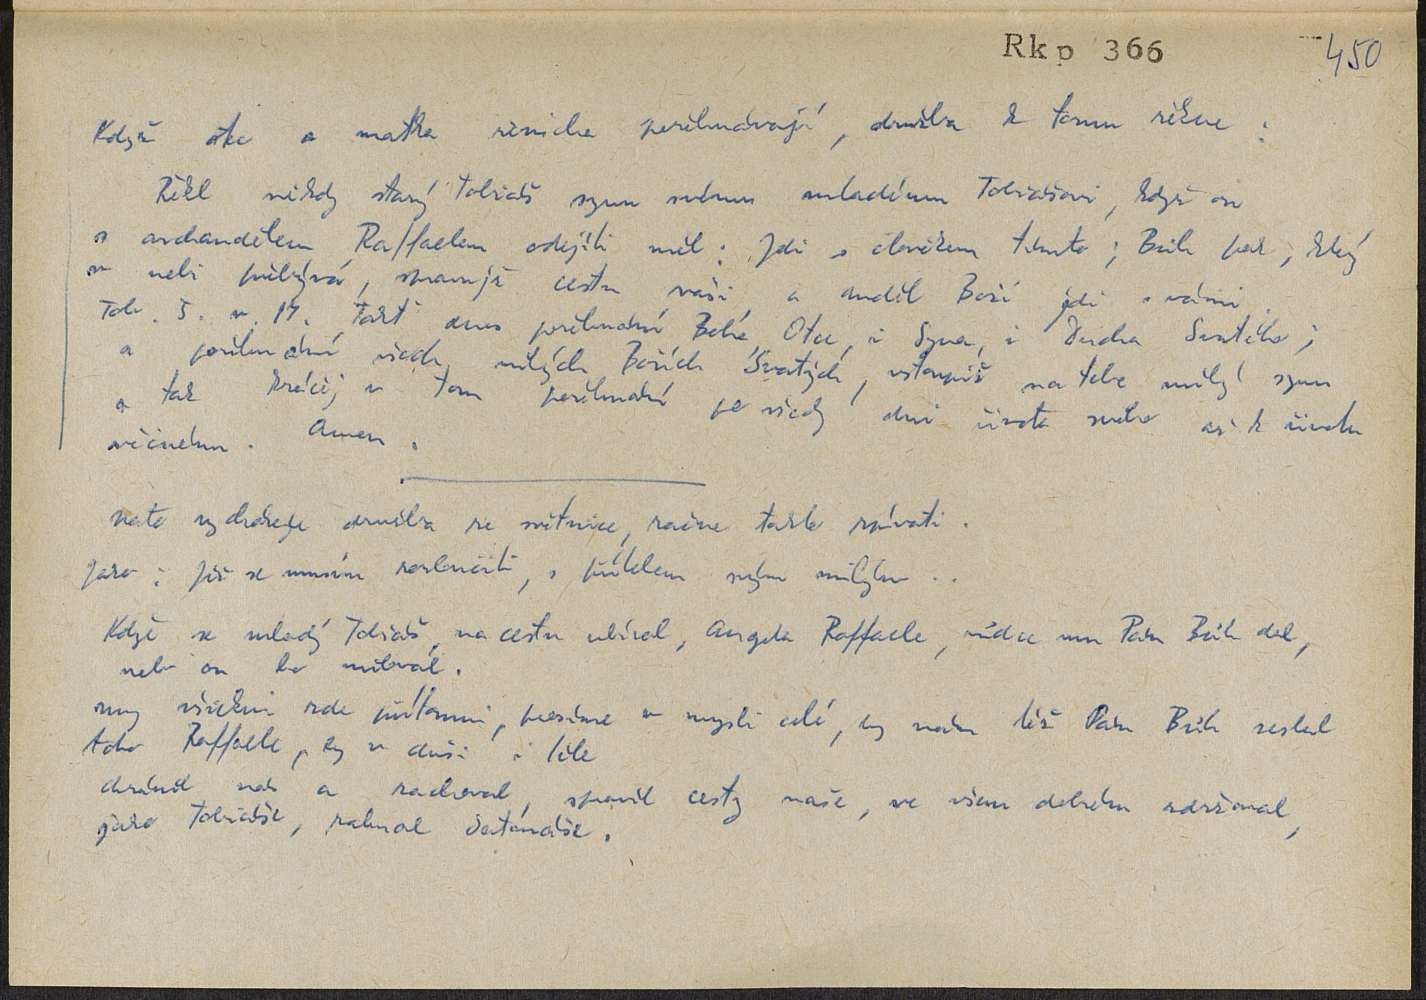 Rkp 366
450
Když otec a matka ženicha požehnávají, družba k tomu řekne:
Řekl někdy starý Tobiáš synu svému mladému Tobiášovi, když on
s archandělem Raffaelem odejíti měl: Jdi s člověkem tímto; Bůh pak, který
v nebi přebývá, spravujž cestu vaši a anděl Boží jdi s vámi.
Tob. 5. v. 17. Takť dnes požehnání Boha Otce, i Syna, i Ducha Svatého;
a požehnání všech milých Božích Svatých, vstoupiž na tebe milý synu
a tak kráčej v tom požehnání po všecky dni života svého až k životu
věčnému. Amen.
Nato vycházeje družba ze světnice, začne takto zpívati.
jako: Již se musím rozloučiti, s přítelem svým milým..
Když se mladý Tobiáš, na cestu ubíral, Angela Raffaele, vůdce mu Pán Bůh dal,
neb on ho miloval.
my všickni zde přítomni, prosíme v mysli celé, by nám též Pán Bůh seslal
toho Raffaele, by v duši i těle
chránil nás a zachoval, spravil cesty naše, ve všem dobrém zdržoval,
jako Tobiáše, zahnal Satanáše.